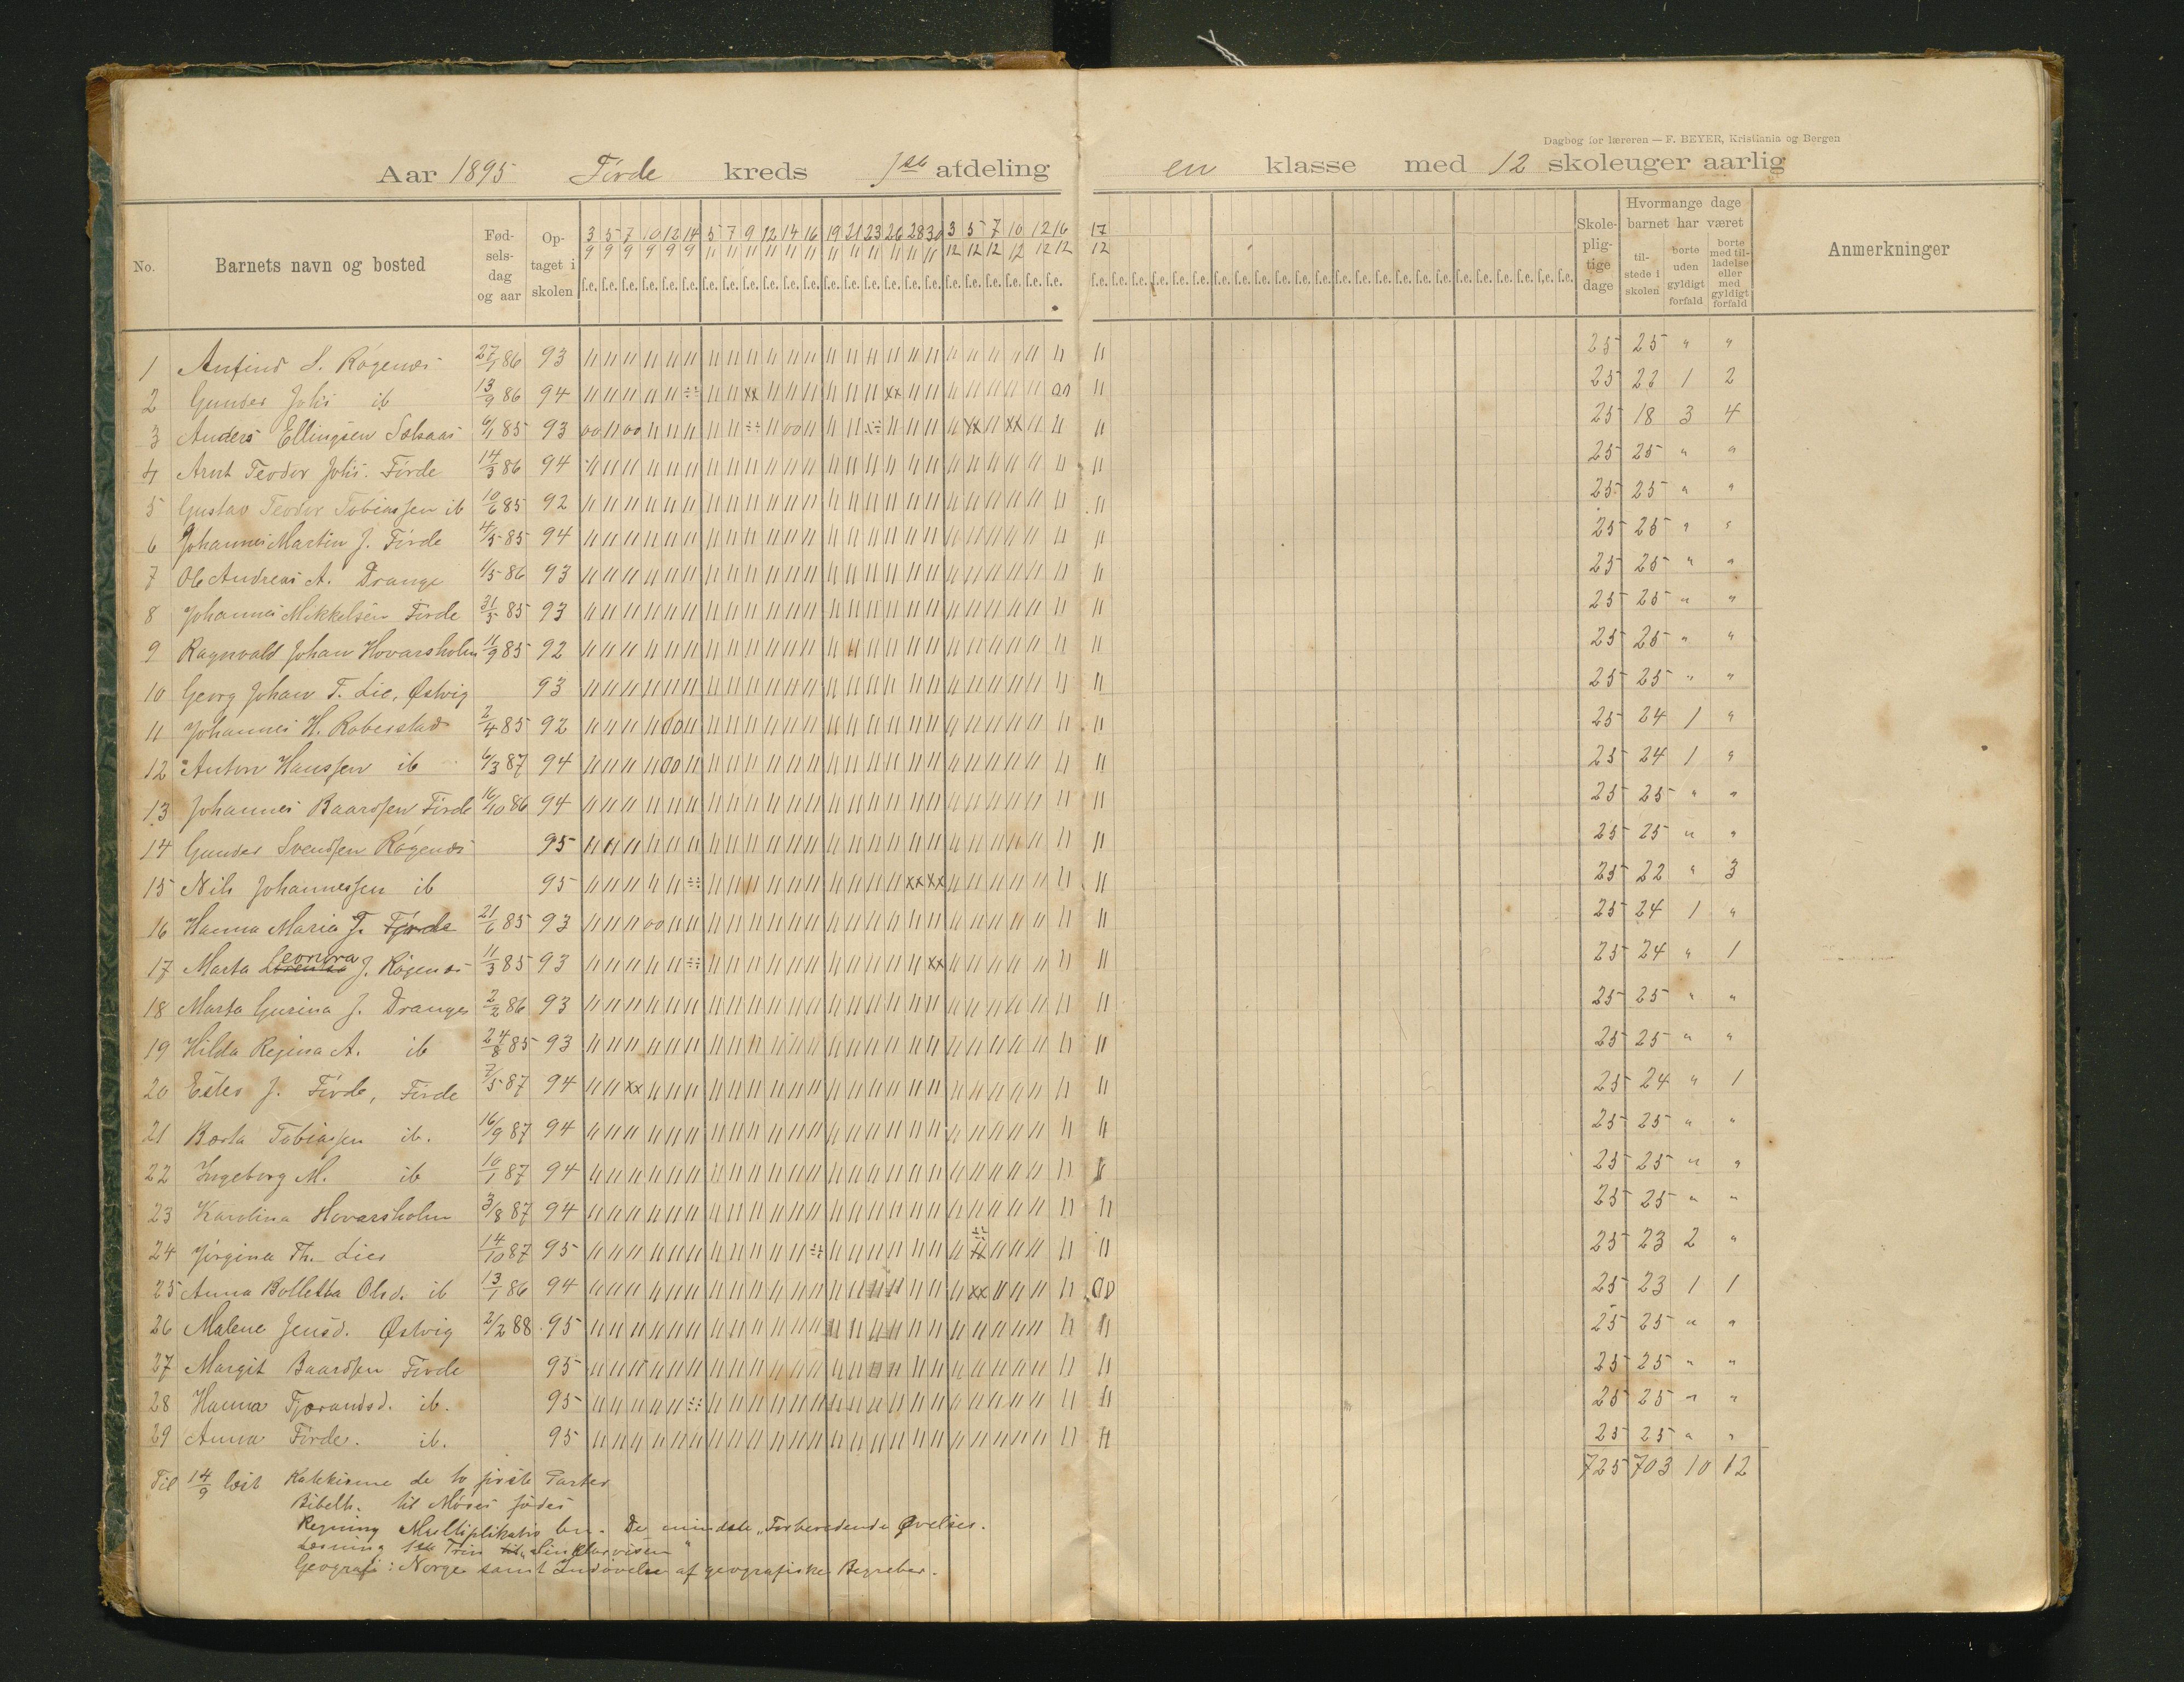 Dagbog for læreren — F. BEYER, Kristiania og Bergen
Aar 1895 Førde kreds 1ste afdeling en klasse med 12 skoleuger aarlig
No. Barnets navn og bosted Fødselsdag og aar Optaget i skolen Skolepligtige dage Hvormange dage barnet har været tilstede i skolen borte uden gyldigt forfald borte med tilladelse eller med gyldigt forfald Anmerkninger
3 5 7 10 12 14 5 7 9 12 14 16 19 21 23 26 28 30 3 5 7 10 12 16 17
9 9 9 9 9 9 11 11 11 11 11 11 11 11 11 11 11 11 12 12 12 12 12 12 12
1 Anfind S. Røgenæs 27/1 86 93 25 25 " "
2 Gunder Johs ib 13/9 86 94 25 22 1 2
3 Anders Ellingsen 6/1 85 93 25 18 3 4
4 Arnt Teodor Johs. Førde 14/3 86 94 25 25 " "
5 Gustav Teodor Tobiassen ib 10/6 85 92 25 25 " "
6 Johannes Martin J. Førde 4/5 85 94 25 25 " "
7 Ole Andreas A. Drange 1/5 86 93 25 25 " "
8 Johannes Mikkelsen Førde 31/5 85 93 25 25 " "
9 Ragnvald Johan Hovarsholm 11/9 85 92 25 25 " "
10 Georg Johan T. Lie, Østvig 93 25 25 " "
11 Johannes H. Roberstad 2/4 85 92 25 24 1 "
12 Anton Hanssen ib 6/3 87 94 25 24 1 "
13 Johannes Baardsen Førde 16/10 86 94 25 25 " "
14 Gunder Svendsen Røgenæs 95 25 25 " "
15 Nils Johannessen ib 95 25 22 " 3
16 Hanna Maria J. Førde 21/6 85 93 25 24 1 "
17 Marta Leonora J. Røgenæs 11/3 85 93 25 24 " 1
18 Marta Gurina J. Drange 2/2 86 93 25 25 " "
19 Hilda Regina A. ib 24/8 85 93 25 25 " "
20 Ester J. Førde, Førde 7/5 87 94 25 24 " 1
21 Berta Tobiassen ib. 16/9 87 94 25 25 " "
22 Ingeborg M. ib 10/1 87 94 25 25 " "
23 Karolina Hovarsholm 3/8 87 94 25 25 " "
24 Jørgina Th. Lier 14/10 87 95 25 23 2 "
25 Anna Bolletta Olsd. ib 13/1 86 94 25 23 1 1
26 Malene Jensd. Østvig 2/2 88 95 25 25 " "
27 Margit Baardsen Førde 95 25 25 " "
28 Hanna Tjerandsd. ib. 95 25 25 " "
29 Anna Førde. ib. 95 25 25 " "
725 703 10 12
Til 14/9 læst Katekisme de to første Parter
Bibelh. til Moses fødes
Regning Multiplikation De mindste "Forberedende Øvelser.
Læsning 1ste Trin til "Sinklarvisen"
Geografi: Norge samt Indøvelse af geografiske Begreber.